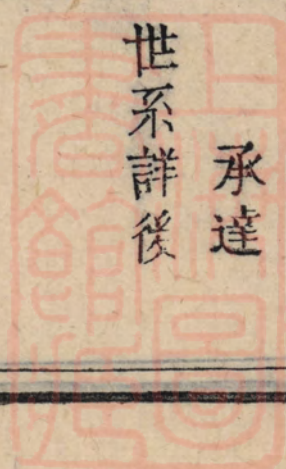 承達
世系詳後